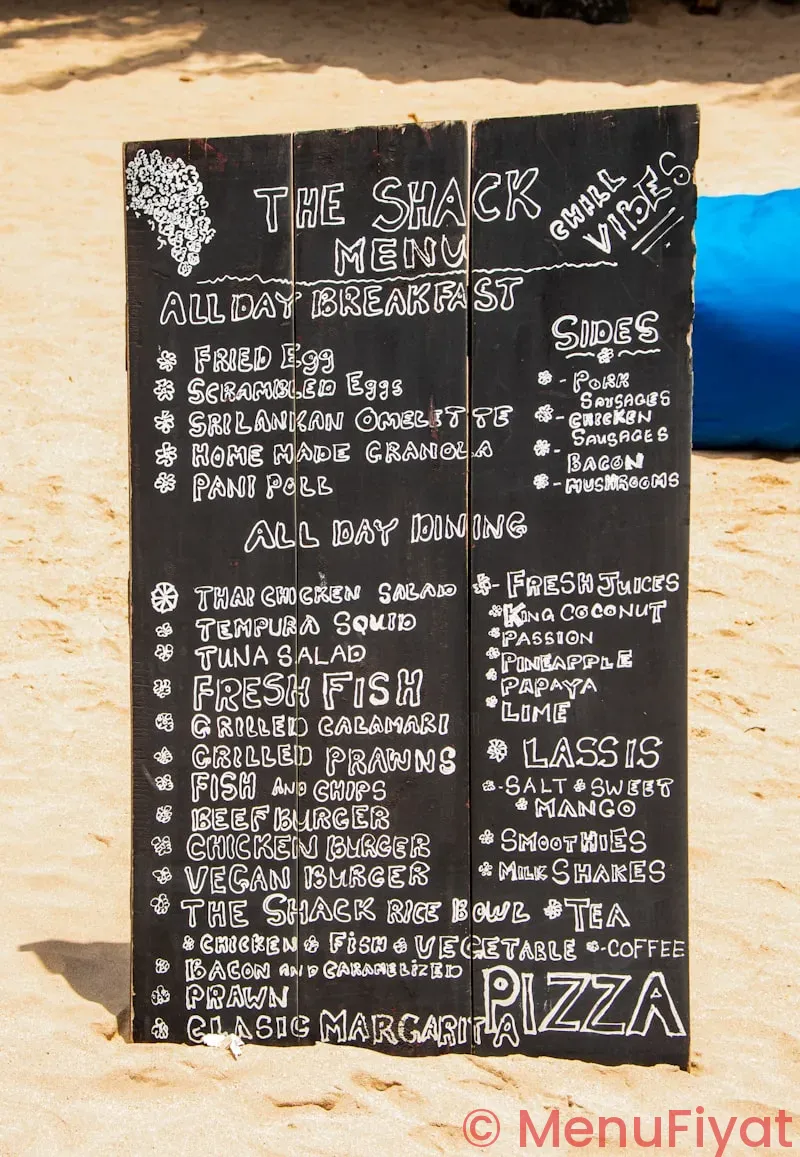 THE SHACK
MENU
CHILL
VIBES
ALL DAY BREAKFAST
FRIED Egg
SCRAMBLED Eggs
SRILANKAN OMELETTE
HOME MADE GRANOLA
PANI POLL
SIDES
- PORK
SAUSAGES
- CHICKEN
SAUSAGES
- BACON
- MUSHROOMS
ALL DAY DINING
THAI CHICKEN SALAD
TEMPURA SQUID
TUNA SALAD
FRESH FISH
GRILLED CALAMARI
GRILLED PRAWNS
FISH AND CHIPS
BEEF BURGER
CHICKEN BURGER
VEGAN BURGER
THE SHACK RICE BOWL
CHICKEN FISH VEGETABLE
BACON AND CARAMELIZED
PRAWN
CLASIC MARGARITA
- FRESH JUICES
KING COCONUT
PASSION
PINEAPPLE
PAPAYA
LIME
LASSIS
- SALT SWEET
MANGO
SMOOTHIES
MILK SHAKES
TEA
- COFFEE
PIZZA
© MenuFiyat